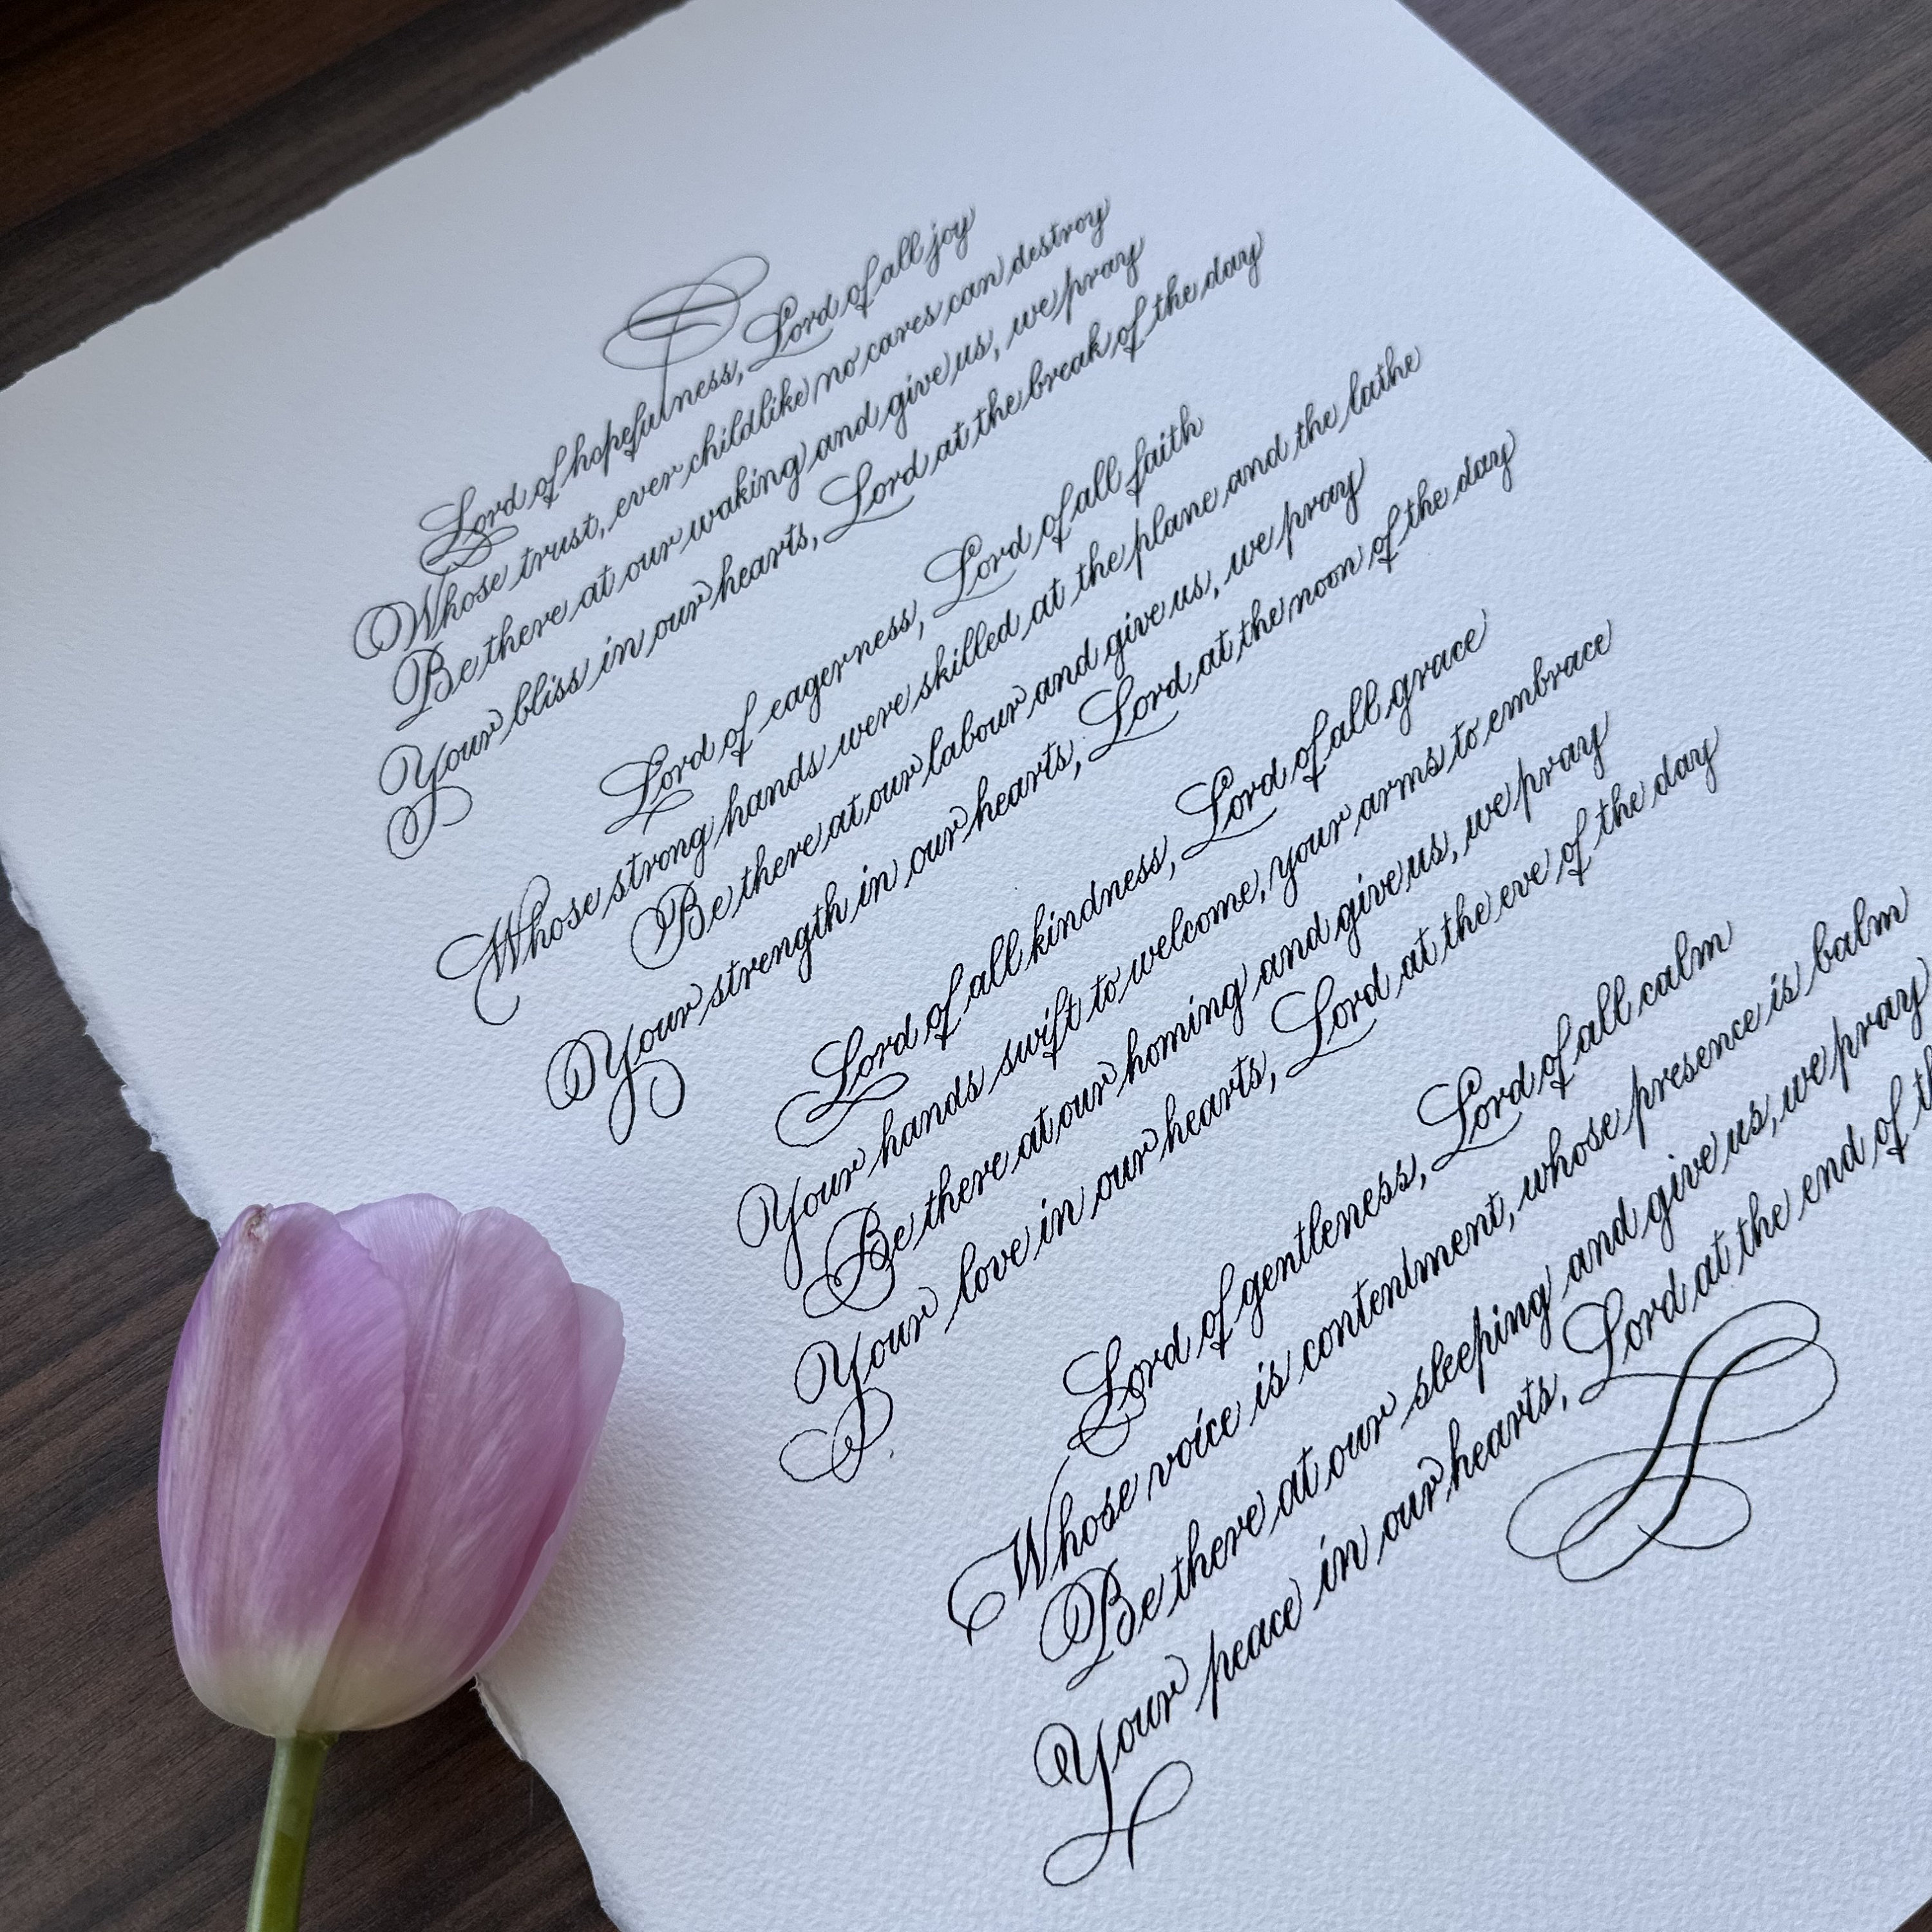 Lord of hopefulness, Lord of all joy
Whose trust, ever childlike no cares can destroy
Be there at our waking and give us, we pray
Your bliss in our hearts, Lord at the break of the day
Lord of eagerness, Lord of all faith
Whose strong hands were skilled at the plane and the lathe
Be there at our labour and give us, we pray
Your strength in our hearts, Lord at the noon of the day
Lord of all kindness, Lord of all grace
Your hands swift to welcome, your arms to embrace
Be there at our homing and give us, we pray
Your love in our hearts, Lord at the eve of the day
Lord of gentleness, Lord of all calm
Whose voice is contentment, whose presence is balm
Be there at our sleeping and give us, we pray
Your peace in our hearts, Lord at the end of